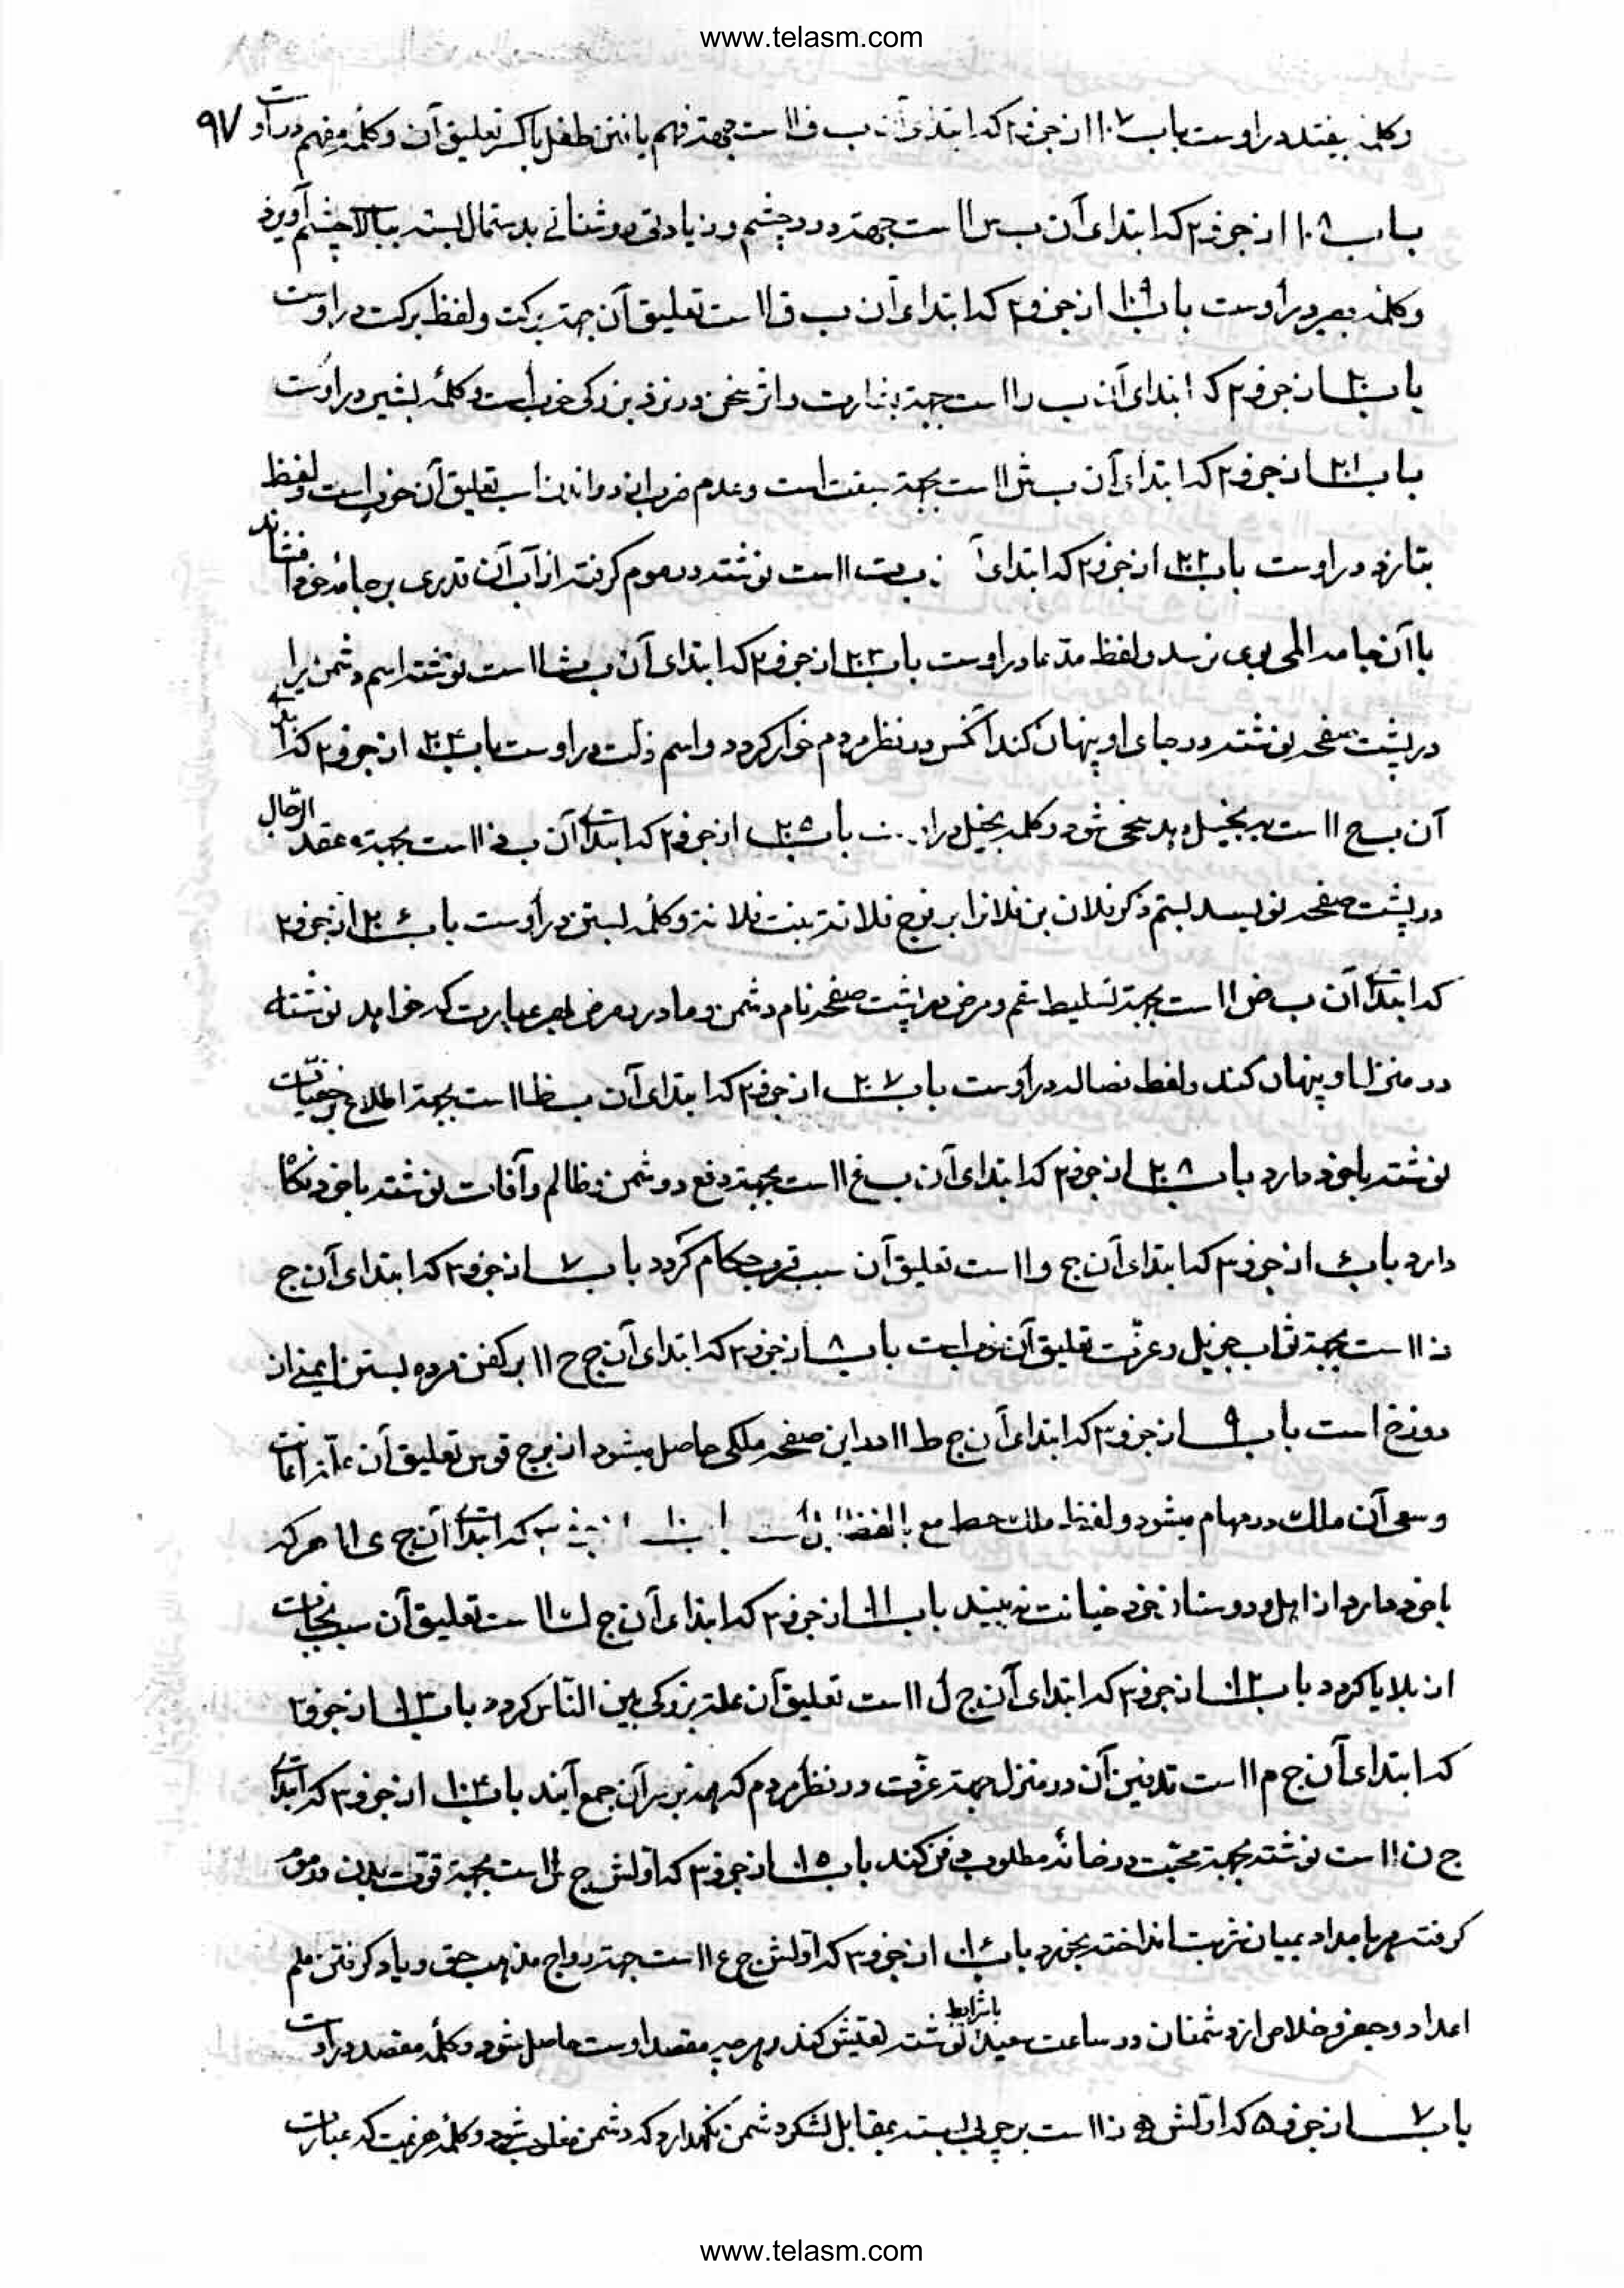 www.telasm.com
وکلمهٔ بفتد در اوست باب ۱۰۷ از جزو ۲ که ابتدای آن ب ف ا ا ست جهة فهم یافتن طفل باکسر تعلیق آن وکلمهٔ مفهم در او ست ۹۷
باب ۱۰۸ از جزو ۲ که ابتدای آن ب ص ا ا ست جهة درد چشم و زیادتی روشنائی بدستمال بسته ببالا چشم آویزد
وکلمه بصیر در اوست باب ۱۰۹ از جزو ۲ که ابتدای آن ب ق ا ا ست تعلیق آن جهة برکت و لفظ برکت در اوست
باب ۲۰ از جزو ۲ که ابتدای آن ب ر ا ا ست جهة بشارت و اثر سخن در نزد بزرگی خوب است و کلمهٔ بشیر در اوست
باب ۲۰۱ از جزو ۲ که ابتدای آن ب ش ا ا ست بجهة سبقت است و عدم ضرب در اسب تعلیق آن خوب است و لفظ
بتازد در اوست باب ۲۰۲ از جزو ۲ که ابتدای آن ب ت ا ا ست نوشته در موم گرفته از آب آن قدری بر جامهٔ خود افشاند
با آن جامه المی بوی نرسد و لفظ مدعا در اوست باب ۲۰۳ از جزو ۲ که ابتدای آن ب ث ا ا ست نوشته اسم دشمن برا
در پشت صفحه نوشته در جای او پنهان کند آنکس در نظر مردم خوار گردد و اسم ذلت در اوست باب ۲۰۴ از جزو ۲ که ابتدای
آن ب خ ا ا ست ببخیل دهد سخی شود و کلمه بخیل در ا ست باب ۲۰۵ از جزو ۲ که ابتدای آن ب ذ ا ا ست بجهة عقد الرجال
در پشت صفحه نویسد بستم ذکر فلان بن فلان را بر فرج فلانة بنت فلانة و کلمهٔ بستن در اوست باب ۲۰۶ از جزو ۲
که ابتدای آن ب ض ا ا ست بجهة تسلیط سقم و مرض در پشت صفحه نام دشمن و مادر و مرض بهر عبارت که خواهد نوشته
در منزل او پنهان کند و لفظ در اوست باب ۲۰۷ از جزو ۲ که ابتدای آن ب ظ ا ا ست بجهة اطلاع بر خفیات
نوشته با خود دارد باب ۲۰۸ از جزو ۲ که ابتدای آن ب غ ا ا ست بجهة دفع دشمن و ظالم و آفات نوشته با خود نگاه
دارد باب ۶ از جزو ۳ که ابتدای آن ج و ا ا ست تعلیق آن سبب قرب حکام گردد باب ۷ از جزو ۳ که ابتدای آن ج
ز ا ا ست بجهة ثواب جزیل و عزت تعلیق آن خوب است باب ۸ از جزو ۳ که ابتدای آن ج ح ا ا بر کفن مرده بستن ایمنی از
دوزخ است باب ۹ از جزو ۳ که ابتدای آن ج ط ا ا در این صفحه ملکی حاصل میشود از برج قوس تعلیق آن
و سعی آن ملک در مهام میشود و لفظ ملک که ابتدای آن ج ی ا ا هر که
با خود دارد از اهل و دوستان خود خیانت نه بیند باب ۱۱ از جزو ۳ که ابتدای آن ج ک ا ا ست تعلیق آن سبب نجات
از بلایا گردد باب ۱۲ از جزو ۳ که ابتدای آن ج ل ا ا ست تعلیق آن علة بزرگی بین الناس گردد باب ۱۳ از جزو ۳
که ابتدای آن ج م ا ا ست تدفین آن در منزل جهة عزت در نظر مردم که همه نزد آن جمع آیند باب ۱۴ از جزو ۳ که ابتدای
ج ن ا ا ست نوشته بجهة محبت در خانهٔ مطلوب دفن کند باب ۱۵ از جزو ۳ که اولش ج س ا ا ست بجهة قوت بدن در موم
گرفته هر بامداد بمیان شربت انداخته بخورد باب ۱۶ از جزو ۳ که اولش ج ع ا ا ست جهة رواج مذهب حق و یاد گرفتن علم
اعداد و جعفر و خلاص از دشمنان در ساعت سعید باشرایط نوشته تفتیش کند و هر چه مقصد اوست حاصل شود و کلمهٔ مقصد در اوست
باب ۷ از جزو ۵ که اولش ه ز ا ا ست بر چوبی بسته بمقابل لشکر دشمن نگهدارد که دشمن مغلوب شود و کلمهٔ هزیمت که عبارت
www.telasm.com